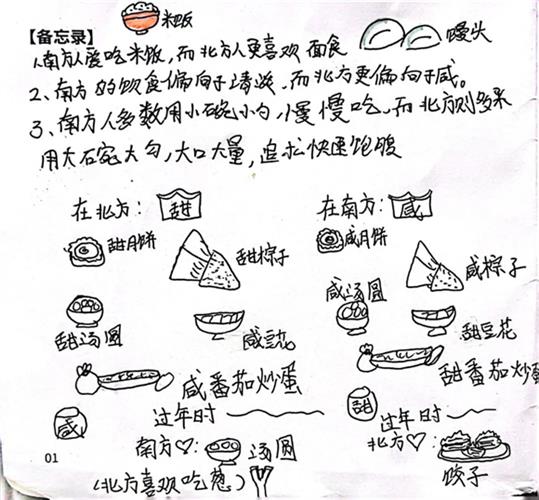 米饭
【备忘录】
1、南方人爱吃米饭,而北方人更喜欢面食
馒头
2、南方的饮食偏向于清淡,而北方更偏向于咸。
3、南方人多数用小碗小勺,慢慢吃,而北方则多采
用大碗大勺,大口大量,追求快速饱腹
在北方: 甜
在南方: 咸
甜月饼
甜粽子
咸月饼
咸粽子
甜汤圆
咸豆花
咸汤圆
甜豆花
咸番茄炒蛋
甜番茄炒蛋
咸
过年时
甜
过年时
南方♡: 汤圆
北方♡:
01
(北方喜欢吃葱)
饺子